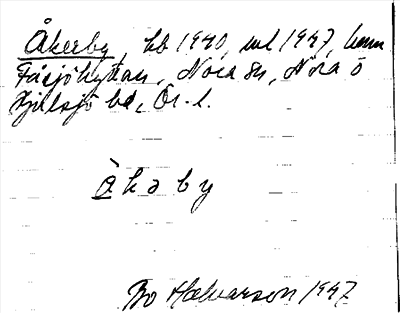 Åkerby, hb 1940, ml 1947, hmn
Fåsjöhyttan, Nora sn, Nora o
Hjulsjö bd, Ör. l.
Åkəby
Bo Halvarson 1947